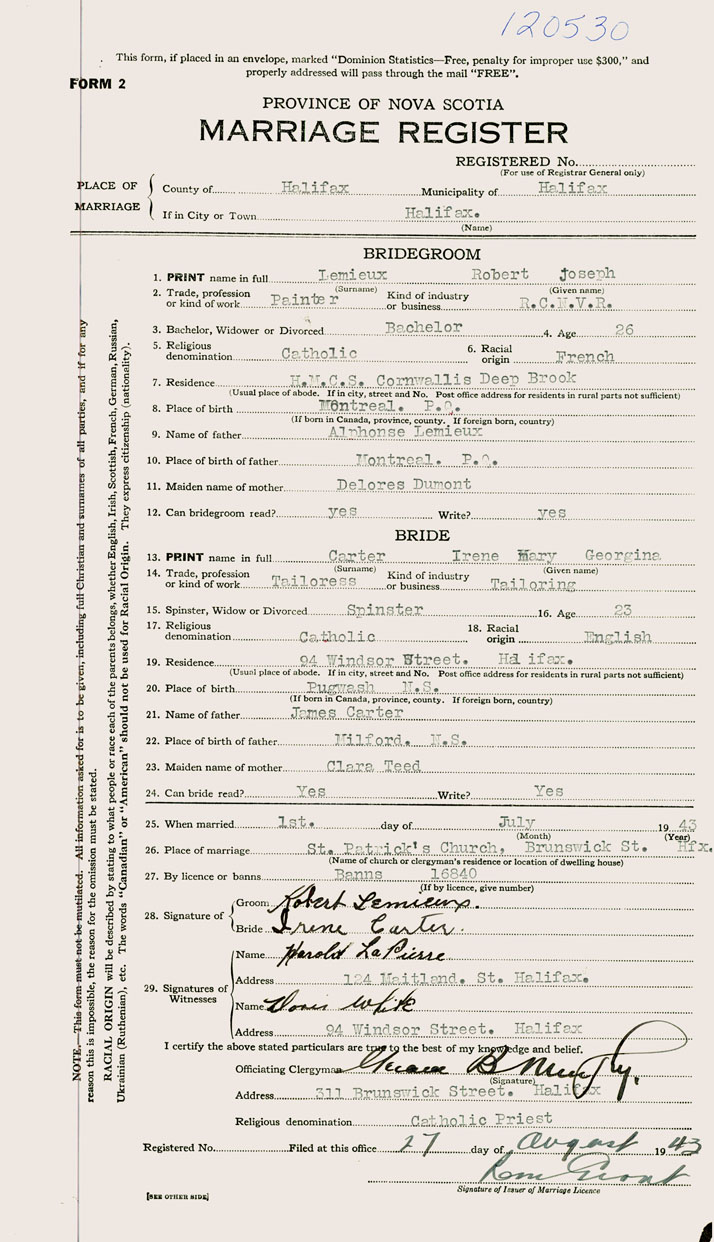 120530
This form, if placed in an envelope, marked "Dominion Statistics—Free, penalty for improper use $300," and
properly addressed will pass through the mail "FREE".
FORM 2
PROVINCE OF NOVA SCOTIA
MARRIAGE REGISTER
REGISTERED No.
(For use of Registrar General only)
PLACE OF MARRIAGE
County of Halifax Municipality of Halifax
If in City or Town Halifax.
(Name)
BRIDEGROOM
1. PRINT name in full Lemieux Robert Joseph
(Surname) (Given name)
2. Trade, profession or kind of work Painter Kind of industry or business R.C.N.V.R.
3. Bachelor, Widower or Divorced Bachelor 4. Age 26
5. Religious denomination Catholic 6. Racial origin French
7. Residence H.M.C.S. Cornwallis Deep Brook
(Usual place of abode. If in city, street and No. Post office address for residents in rural parts not sufficient)
8. Place of birth Montreal. P.Q.
(If born in Canada, province, county. If foreign born, country)
9. Name of father Alphonse Lemieux
10. Place of birth of father Montreal. P.Q.
11. Maiden name of mother Delores Dumont
12. Can bridegroom read? yes Write? yes
BRIDE
13. PRINT name in full Carter Irene Mary Georgina
(Surname) (Given name)
14. Trade, profession or kind of work Tailoress Kind of industry or business Tailoring
15. Spinster, Widow or Divorced Spinster 16. Age 23
17. Religious denomination Catholic 18. Racial origin English
19. Residence 94 Windsor Street. Halifax.
(Usual place of abode. If in city, street and No. Post office address for residents in rural parts not sufficient)
20. Place of birth Pugwash N.S.
(If born in Canada, province, county. If foreign born, country)
21. Name of father James Carter
22. Place of birth of father Milford. N.S.
23. Maiden name of mother Clara Teed
24. Can bride read? Yes Write? Yes
25. When married 1st. day of July 1943
(Month) (Year)
26. Place of marriage St. Patrick's Church, Brunswick St. Hfx.
(Name of church or clergyman's residence or location of dwelling house)
27. By licence or banns Banns 16840
(If by licence, give number)
28. Signature of
Groom Robert Lemieux.
Bride Irene Carter.
29. Signatures of Witnesses
Name Harold LaPierre
Address 124 Maitland. St. Halifax.
Name Doris White
Address 94 Windsor Street. Halifax
I certify the above stated particulars are true to the best of my knowledge and belief.
Officiating Clergyman
(Signature)
Address 311 Brunswick Street. Halifax
Religious denomination Catholic Priest
Registered No. Filed at this office 27 day of August 1943
Signature of Issuer of Marriage Licence
[SEE OTHER SIDE]
NOTE.—This form must not be mutilated. All information asked for is to be given, including full Christian and surnames of all parties, and if for any
reason this is impossible, the reason for the omission must be stated.
RACIAL ORIGIN will be described by stating to what people or race each of the parents belongs, whether English, Irish, Scottish, French, German, Russian,
Ukrainian (Ruthenian), etc. The words "Canadian" or "American" should not be used for Racial Origin. They express citizenship (nationality).